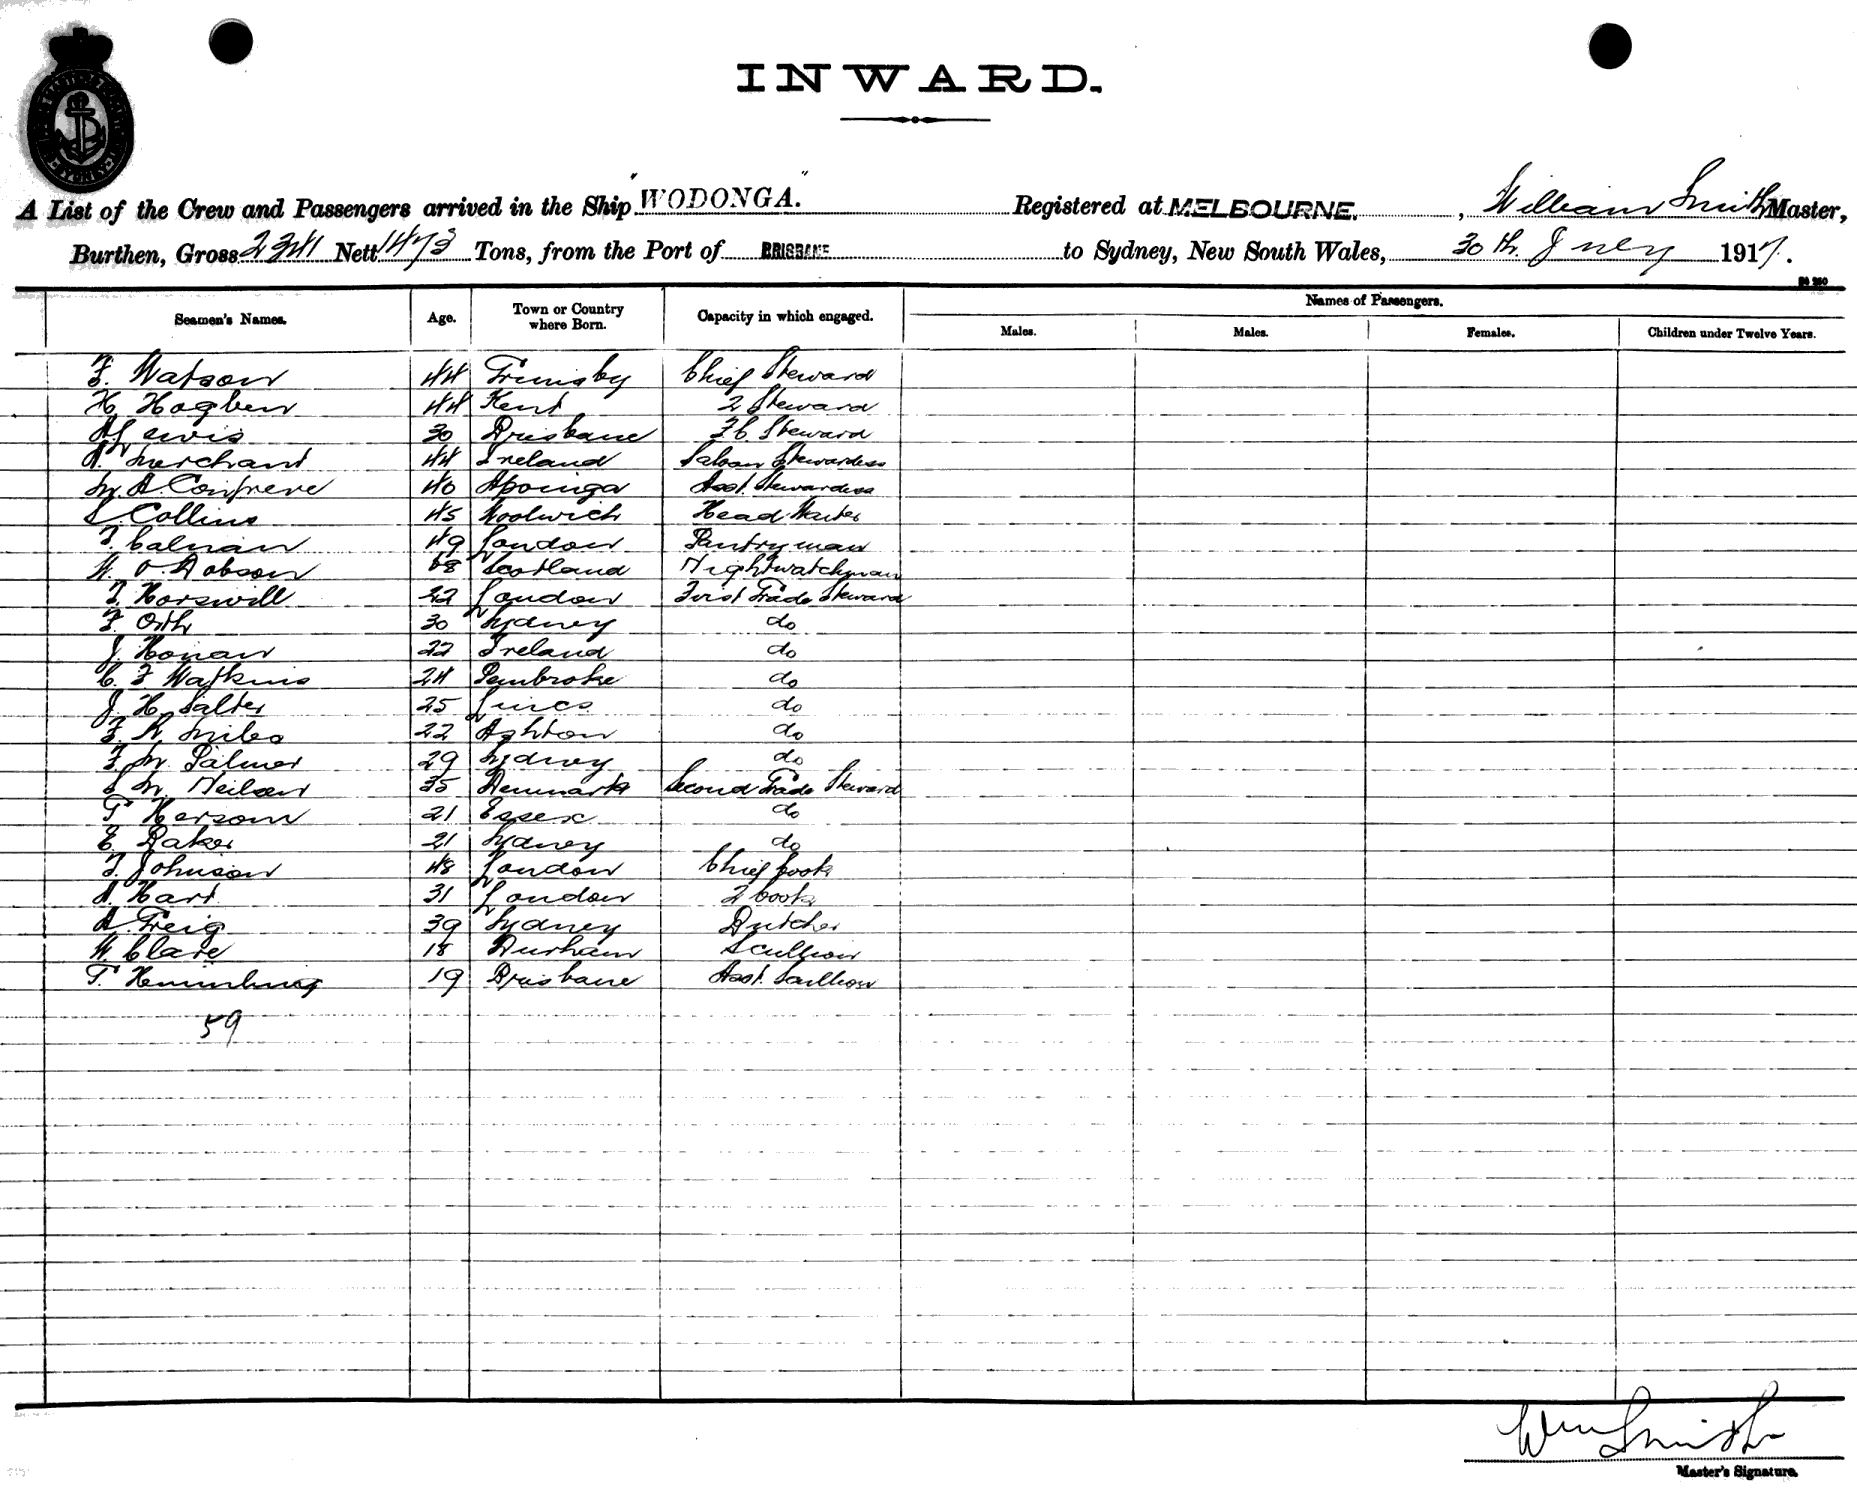 INWARD.
A List of the Crew and Passengers arrived in the Ship "WODONGA." Registered at MELBOURNE, William Smith Master,
Burthen, Gross 2341 Nett 1473 Tons, from the Port of BRISBANE to Sydney, New South Wales, 30th July 1917.
Names of Passengers.
Seamen's Names. Age. Town or Country where Born. Capacity in which engaged. Males. Males. Females. Children under Twelve Years.
F. Watson 44 Grimsby Chief Steward
H. Hogben 44 Kent 2 Steward
A Lewis 30 Brisbane F.C. Steward
A. Merchant 44 Ireland Saloon Stewardess
M. A. 40 Asst. Stewardess
S. Collins 45 Woolwich Head Waiter
F. Calnan 49 London Pantryman
W. O. Dobson 68 Scotland Nightwatchman
F. Horswill 22 London First Grade Steward
F. Orth 30 Sydney do
J. Honan 22 Ireland do
C. F Watkins 24 Pembroke do
J. H. Salter 25 Lincs do
F. R. Miles 22 Ashton do
F. M. Palmer 29 Sydney do
S. M. Neilsen 35 Denmark Second Grade Steward
T. Hersom 21 Essex do
E. Baker 21 Sydney do
F. Johnson 48 London Chief Cook
A. Hart 31 London 2 Cook
A. Greig 39 Sydney Butcher
W. Clare 18 Durham Scullion
T. 19 Brisbane Asst. Scullion
59
Wm Smith
Master's Signature.